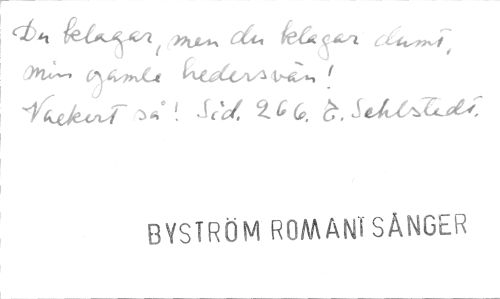 Du klagar, men du klagar dumt,
min gamle hedersvän!
Vackert så! Sid. 266. E. Sehlstedt.
BYSTRÖM ROMANTSÅNGER